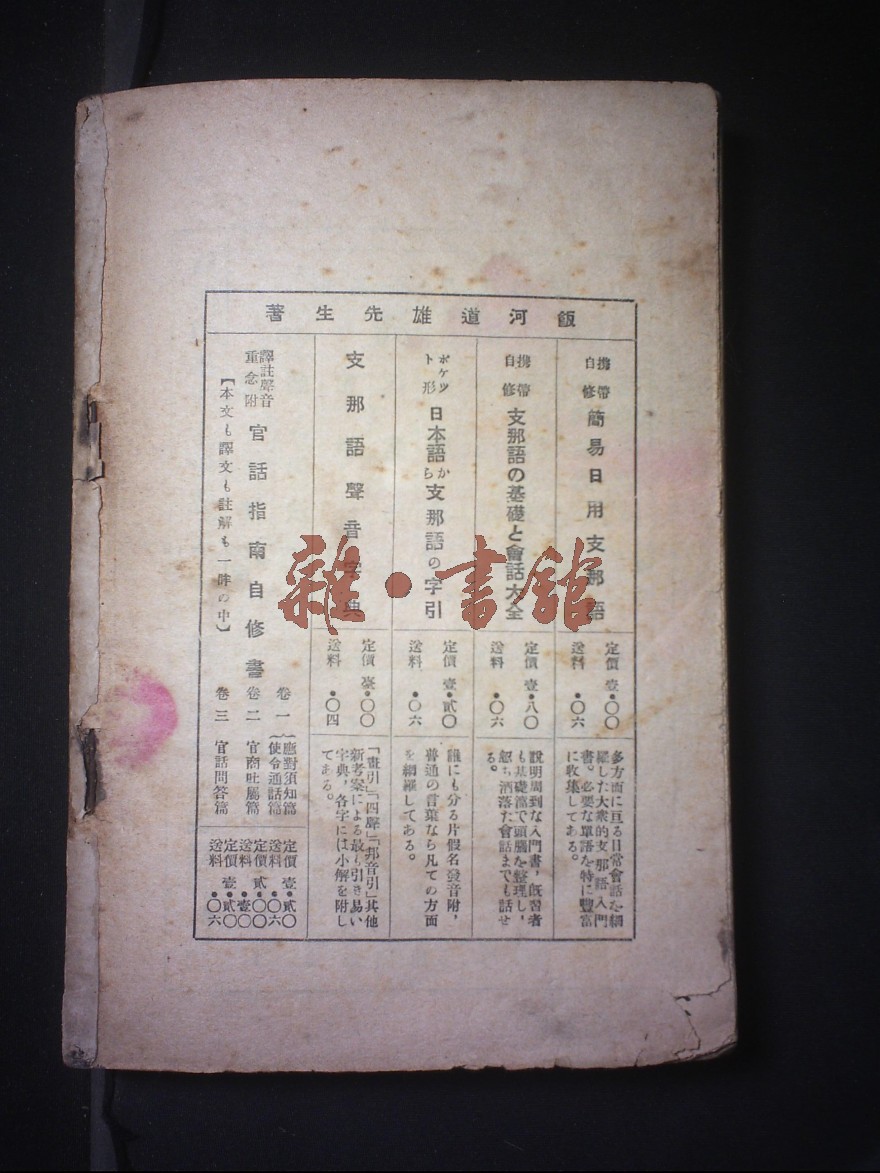 飯河道雄先生著
携帶
自修
簡易日用支那語
定價 壹・〇〇
送料 ・〇六
多方面に亘る日常會話を網
羅した大衆的支那語入門
書。必要な單語を特に豐富
に收集してある。
携帶
自修
支那語の基礎と會話大全
定價 壹・八〇
送料 ・〇六
說明周到な入門書，旣習者
も基礎篇で頭腦を整理し，
忽ち洒落た會話までも話せ
る。
ポケツ
ト形
日本語から支那語の字引
定價 壹・貳〇
送料 ・〇六
誰にも分る片假名發音附，
普通の言葉なら凡ての方面
を網羅してある。
支那語聲音字典
定價 壹・〇〇
送料 ・〇四
「畫引」「四聲」「邦音引」其他
新考案による最も引き易い
字典，各字には小解を附し
てある。
譯註聲音
重念附
官話指南自修書
【本文も譯文も註解も一眸の中】
卷一 應對須知篇
使令通話篇
卷二 官商吐屬篇
卷三 官話問答篇
定價 壹・貳〇
送料 ・〇六
定價 貳・〇〇
送料 ・壹〇
定價 壹・貳〇
送料 ・〇六
雜・書館